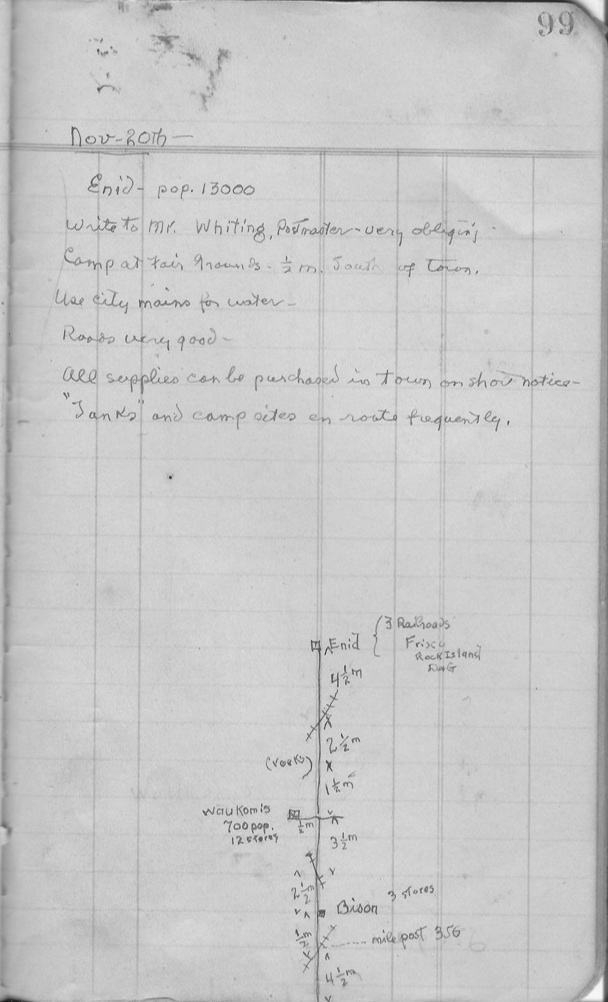 99
Nov-20th-
Enid- pop. 13000
Write to Mr. Whiting, Postmaster-very obliging
Camp at Fair Grounds- 1/2 m. South of Town.
Use city mains for water-
Roads very good-
All supplies can be purchased in town on short notice-
"Tanks" and camp sites en route frequently.
Enid { 3 Railroads
Frisco
Rock Island
4 1/2 m
2 1/2 m
1 1/2 m
Waukomis
700 pop.
12 stores
1/2 m
3 1/2 m
3 stores
2 1/2 m
Bison
1/2 m
mile post 356
4 1/2 m